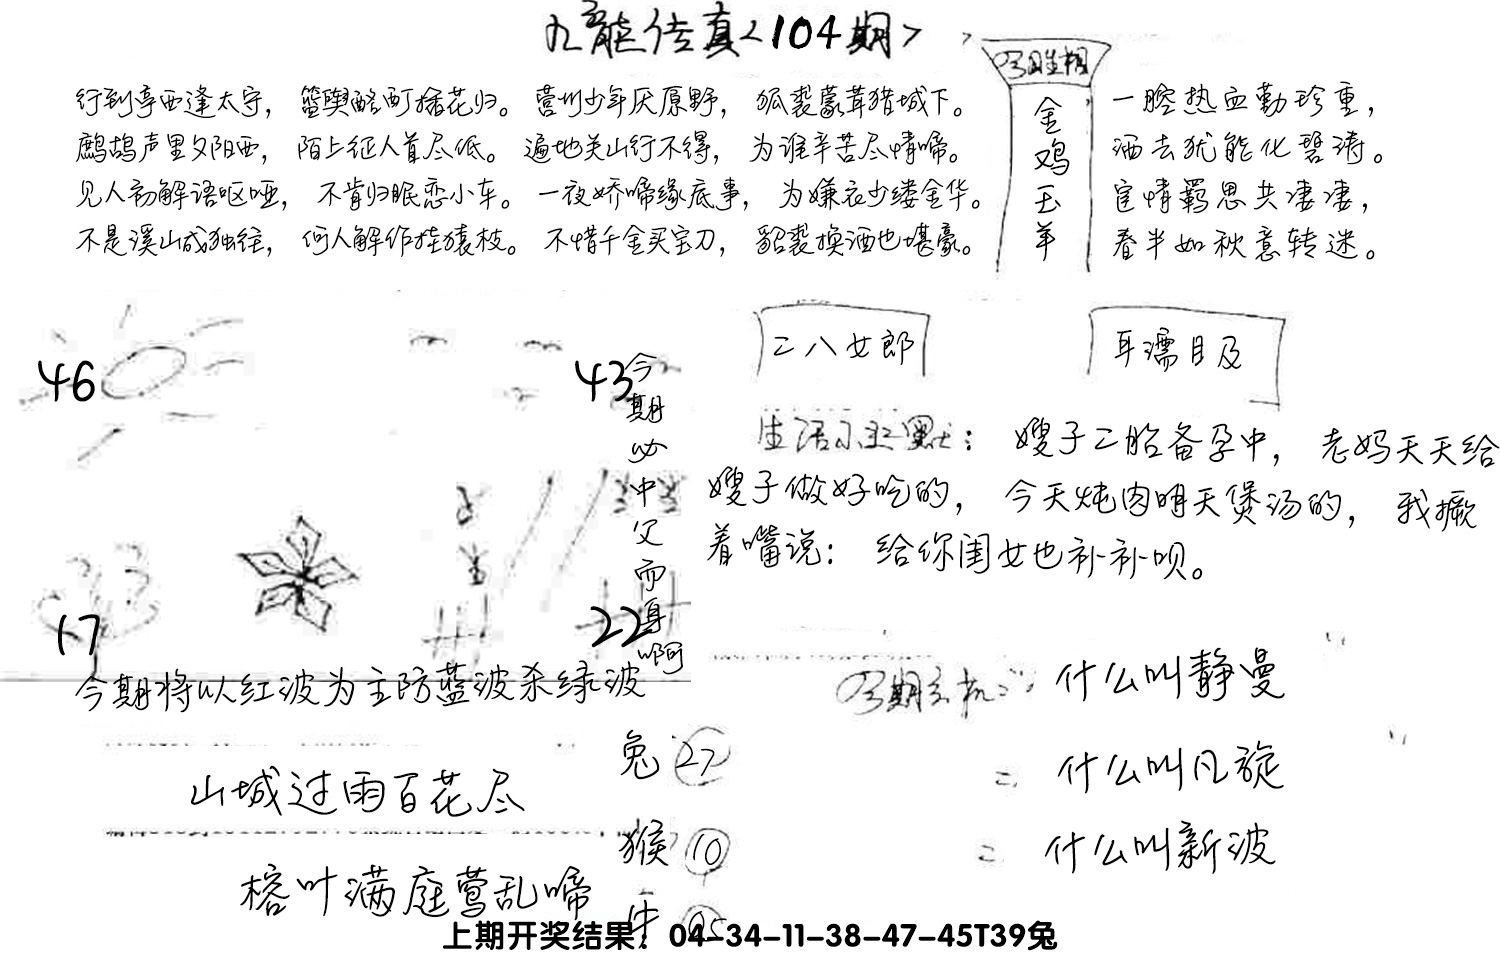 九龙传真<104期>
行到亭西逢太守，篮舆酩酊插花归。营州少年厌原野，狐裘蒙茸猎城下。
鹧鸪声里夕阳西，陌上征人首尽低。遍地关山行不得，为谁辛苦尽情啼。
见人初解语呕哑，不肯归眠恋小车。一夜娇啼缘底事，为嫌衣少缕金华。
不是溪山成独往，何人解作挂猿枝。不惜千金买宝刀，貂裘换酒也堪豪。
金鸡玉羊
一腔热血勤珍重，
洒去犹能化碧涛。
宦情羁思共凄凄，
春半如秋意转迷。
46
43
17
22
今期必中父而身啊
今期将以红波为主防蓝波杀绿波
二八女郎
耳濡目及
生活小幽默：嫂子二胎备孕中，老妈天天给
嫂子做好吃的，今天炖肉明天煲汤的，我撅
着嘴说：给你闺女也补补呗。
什么叫静曼
= 什么叫凡旋
= 什么叫新波
山城过雨百花尽
榕叶满庭莺乱啼
兔 27
猴 10
牛 05
上期开奖结果：04-34-11-38-47-45T39兔